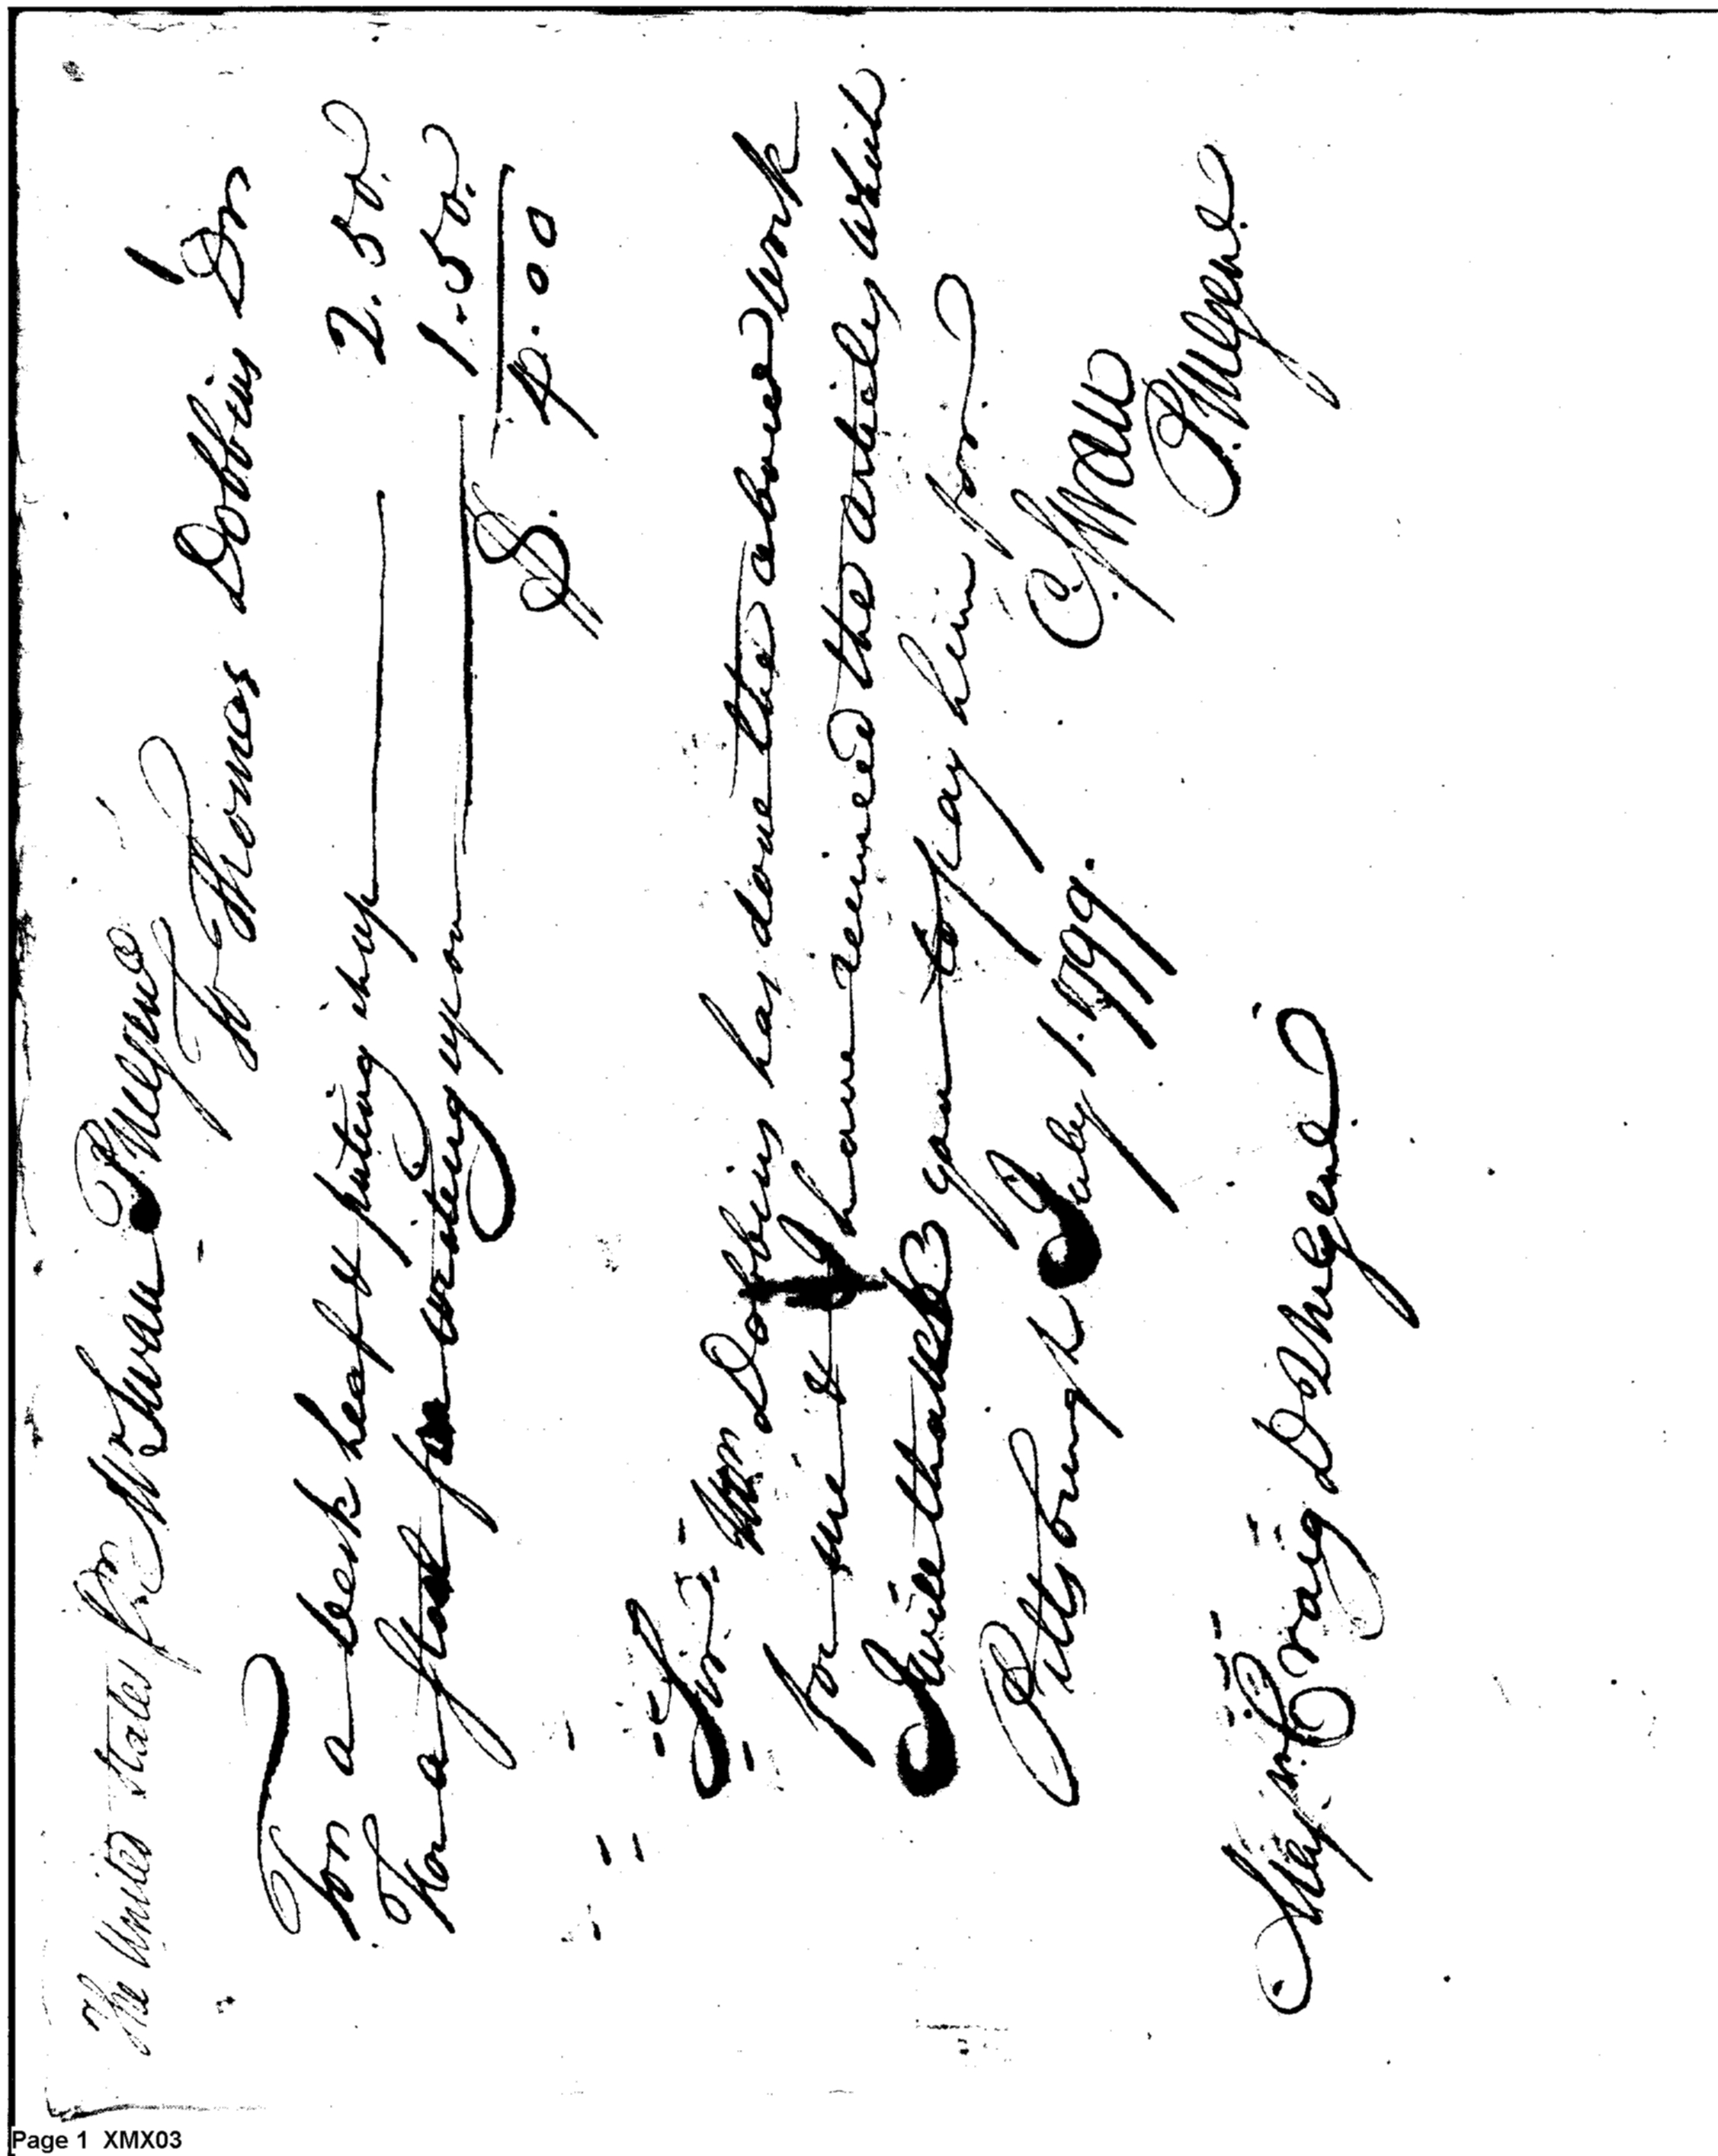 The United States for Mr Swan P M Gen'l
To Thomas Dobbins Dr
For a desk leaf & puting it up 2.50
For a for writing upon 1.50
$. 4.00
Sir Mr Dobbins has done the above work
for me & I have received the articles which
I will thank you to pay him for
C Swan
P. M Genel
Pittsburgh July 1. 1799.
Major Craig D Q M General
Page 1 XMX03